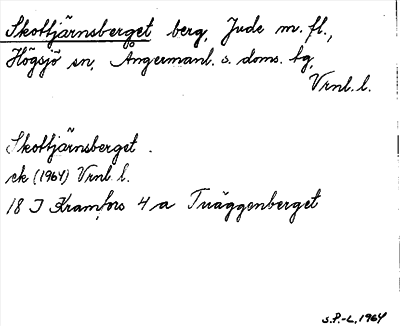 Skottjärnsberget berg, Jude m. fl.,
Högsjö sn, Ångermanl. s. doms. tg,
Vrnl. l.
Skottjärnsberget.
ek (1964) Vrnl. l.
18 J Kramfors 4 a Tväggenberget
S.P.-L, 1964